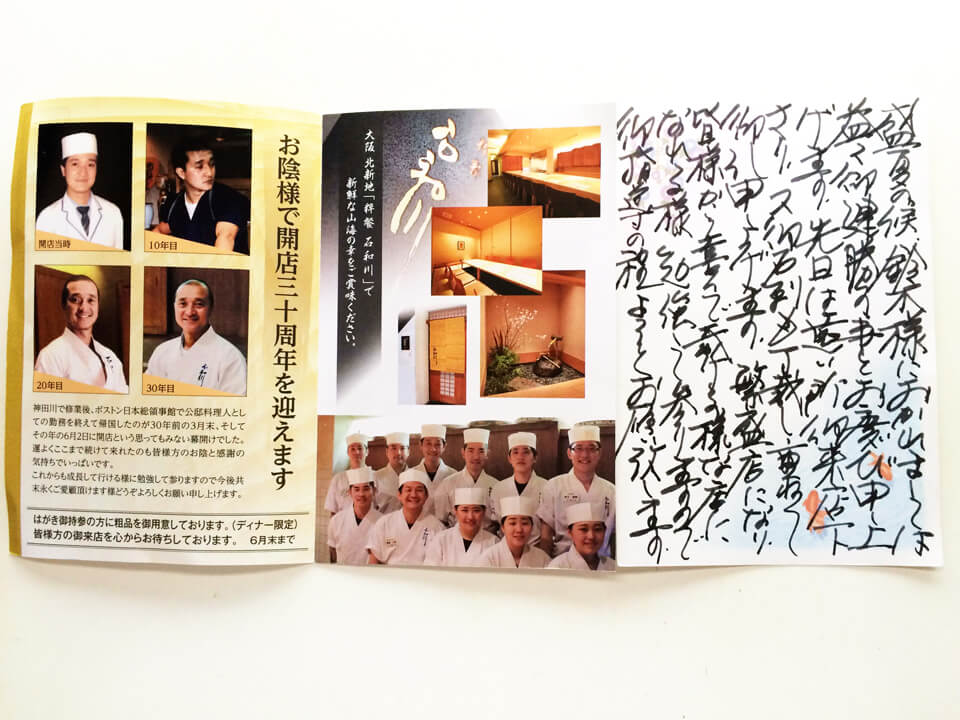 お陰様で開店三十周年を迎えます
開店当時
10年目
20年目
30年目
神田川で修業後、ボストン日本総領事館で公邸料理人とし
ての勤務を終えて帰国したのが30年前の3月末、そして
その年の6月2日に開店という思ってもみない幕開けでした。
運よくここまで続けて来れたのも皆様方のお陰と感謝の
気持ちでいっぱいです。
これからも成長して行ける様に勉強して参りますので今後共
末永くご愛顧頂けます様どうぞよろしくお願い申し上げます。
はがき御持参の方に粗品を御用意しております。(ディナー限定)
皆様方の御来店を心からお待ちしております。 6月末まで
大阪 北新地「粋餐 石和川」で
新鮮な山海の幸をご賞味ください。
石和川
盛夏の候 鈴木様におかれましては
益々御健勝の事とお慶び申上
げます。先日は暑い所御来店下
さり、又御名刺迄丁戴し重ねて
御礼申し上げます。繁盛店になり
皆様から喜んで頂ける様な店に
なれる様 勉強して参りますので
御指導の程よろしくお願い致します。